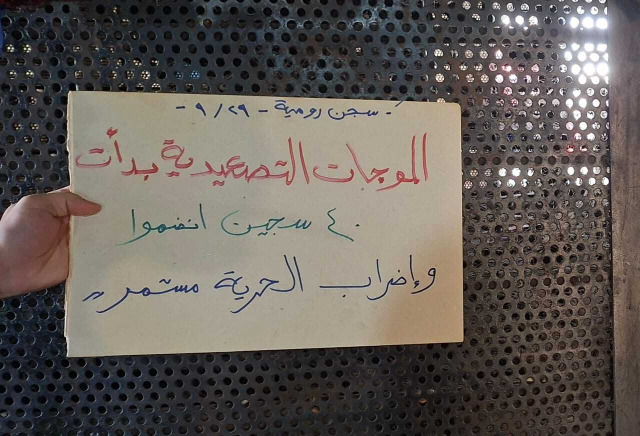 - سجن رومية - ٢٩ / ٩ -
الموجات التصعيدية بدأت
٤٠ سجين انضموا
وإضراب الحرية مستمر ,,